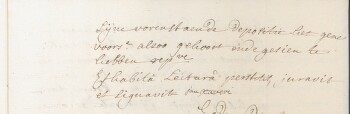 Sijne vorenstaende depositie liet gene
voors. alsoo gehoort ende gesien te
hebben
Exhabita Lectura perstitit, iuravit
et signavit